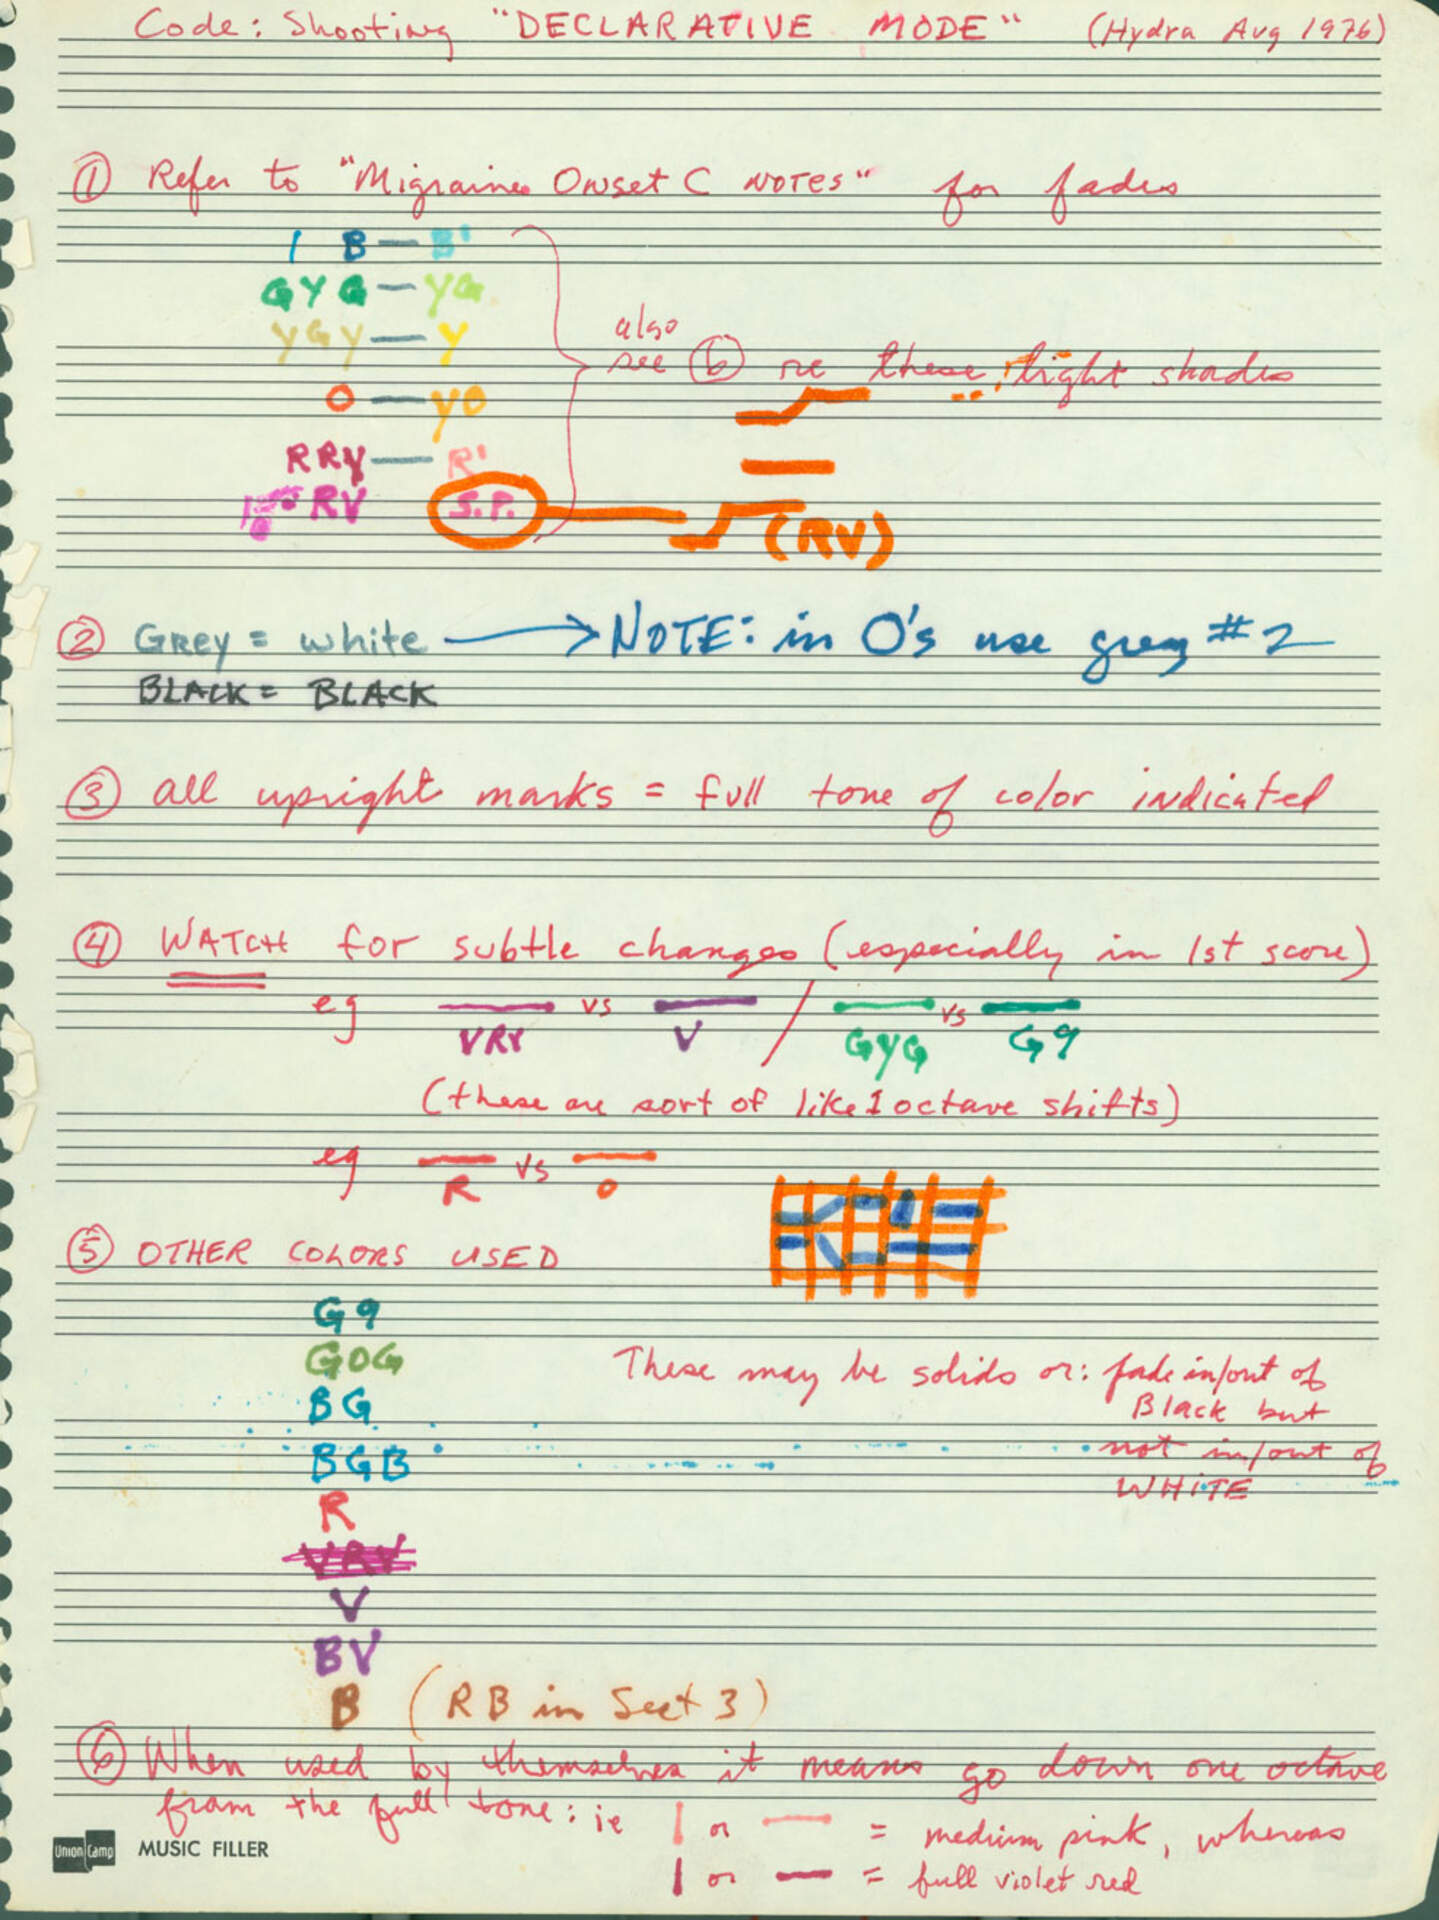 Code: Shooting "DECLARATIVE MODE" (Hydra Aug 1976)
① Refer to "Migraine Onset C NOTES" for fades
| B — B'
GYG — YG
YGY — Y
O — YO
RRV — R'
RV S.P. (RV)
also
see ⑥ re these light shades
② GREY = white → NOTE: in O's use grey #2
BLACK = BLACK
③ all upright marks = full tone of color indicated
④ WATCH for subtle changes (especially in 1st score)
eg VRV vs V / GYG vs G9
(these are sort of like 1 octave shifts)
eg R vs O
⑤ OTHER COLORS USED
G9
GOG
BG
BGB
R
VRV
V
BV
B (RB in Sect 3)
These may be solids or: fade in/out of
Black but
not in/out of
WHITE
⑥ When used by themselves it means go down one octave
from the full tone: ie | or — = medium pink, whereas
| or — = full violet red
Union Camp MUSIC FILLER